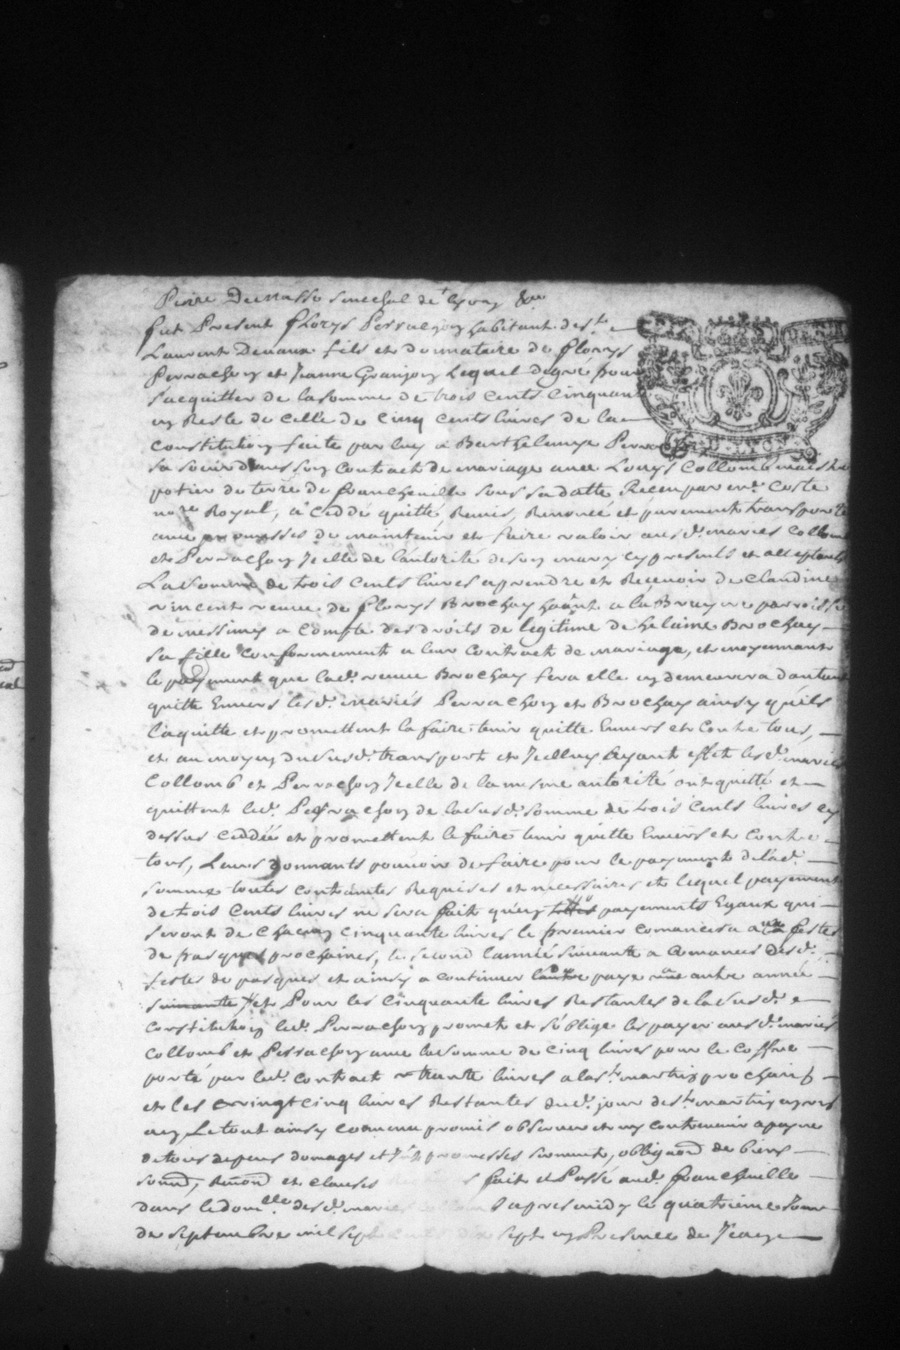 Pierre Dumasso senechal de Lyon &a
fut Present fflorys Perrachon habitant de st
Laurent Devaux fils et donnataire de fflorys
Perrachon et Jeanne Granjon Lequel de gré pour
s'acquitter de la somme de trois cents cinquante
en Reste de Celle de Cinq cents livres de la
constitution faite par luy a Barthelemye Perra
sa soeur dans son Contract de mariage avec Lorys Collomb
potier de terre de francheville sous sa datte Receu par me Coste
nore Royal, a Ceddé quitté Remis, Renoncé et purement transporté
avec promesses de maintenir et faire valoir aus d. mariés Collomb
et Perrachon Jcelle de l'autorité de son mary cy presents et acceptants
La somme de trois cents livres a prendre et Recevoir de Claudine
vincent veuve de fflorys Brochay hante a la Bruyere parroisse
de messimy a compte des droits de legitime de helaine Brochay
sa fille conformement a leur contract de mariage, et moyennant
le payment que lad. veuve Brochay fera elle en demeurera d'autant
quitte Envers lesd. mariés Perrachon et Brochay ainsy quils
l'aquitte et promettent la faire tenir quitte Envers et Contre tous,
et au moyen du susd. transport et Jcelluy ayant effet lesd. mariés
Collomb et Perrachon Jcelle de la mesme autorité ont quitté et
quittent led. Perrachon de la susd. somme de trois cents livres cy
dessus Ceddée et promettent le faire tenir quitte Envers et contre
tous, Leurs donnants pouvoir de faire pour le payment de lad.
somme toutes contraintes Requises et necessaires et lequel payement
de trois cents livres ne sera fait qu'en payements Egaux qui
seront de Chacun cinquante livres le premier comancera aux festes
de pasques prochaines, le second l'année suivante a comancer desd.
festes de pasques et ainsy a continuer paye une autre année
suivante et Pour les Cinquante livres Restantes de la susd.
Constitution led. Perrachon promet et s'oblige les payer aus d. mariés
Collomb et Perrachon avec la somme de cinq livres pour le Coffre
porté par led. contract trante livres a la st martin prochain
et les vingt cinq livres Restantes dud. jour de st martin apres
en Le tout ainsy comme promis observer et ny contrevenir a payne
de tous depens domages et promesses serment, obligaon de biens
soumd, Renond et clauses fait et Passé aud. francheville
dans le domlle desd. mariés apres midy le quatrieme Jour
de septembre mil sept cents dix sept en Presence de Jean